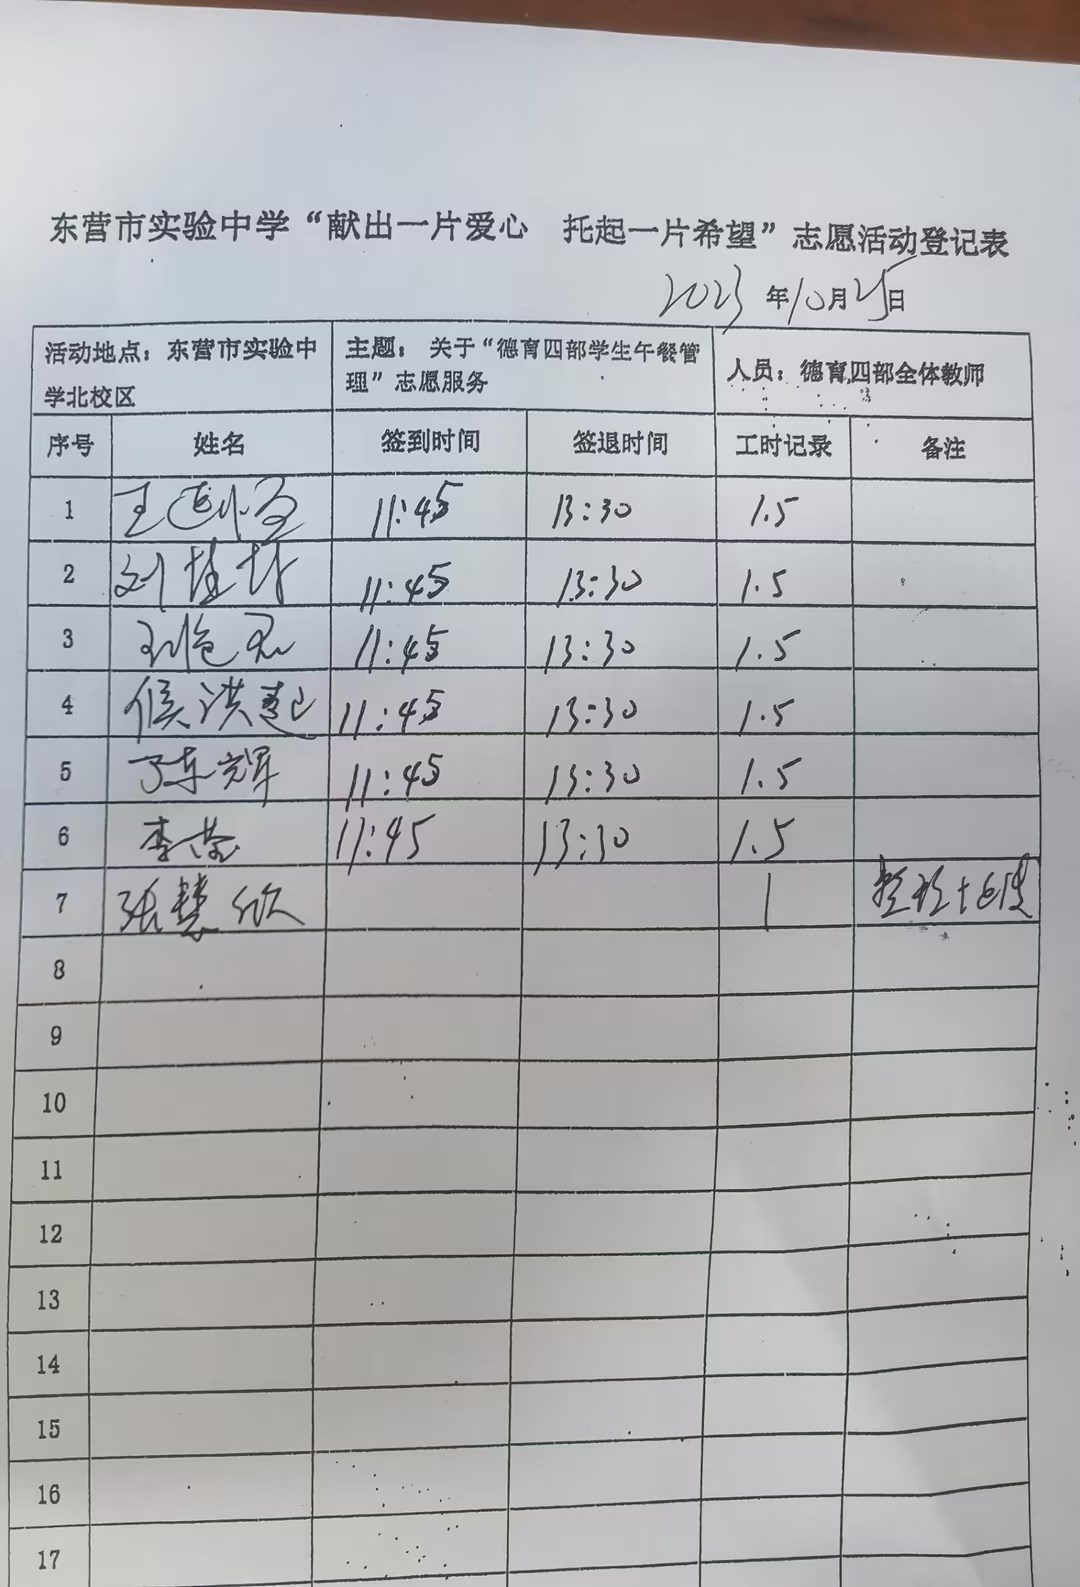 东营市实验中学“献出一片爱心 托起一片希望”志愿活动登记表
2023年10月25日
活动地点：东营市实验中学北校区 主题：关于“德育四部学生午餐管理”志愿服务 人员：德育四部全体教师
序号 姓名 签到时间 签退时间 工时记录 备注
1 王 11:45 13:30 1.5
2 刘 11:45 13:30 1.5
3 11:45 13:30 1.5
4 侯洪起 11:45 13:30 1.5
5 陈辉 11:45 13:30 1.5
6 李 11:45 13:30 1.5
7 张慧欣 1 整理
8
9
10
11
12
13
14
15
16
17